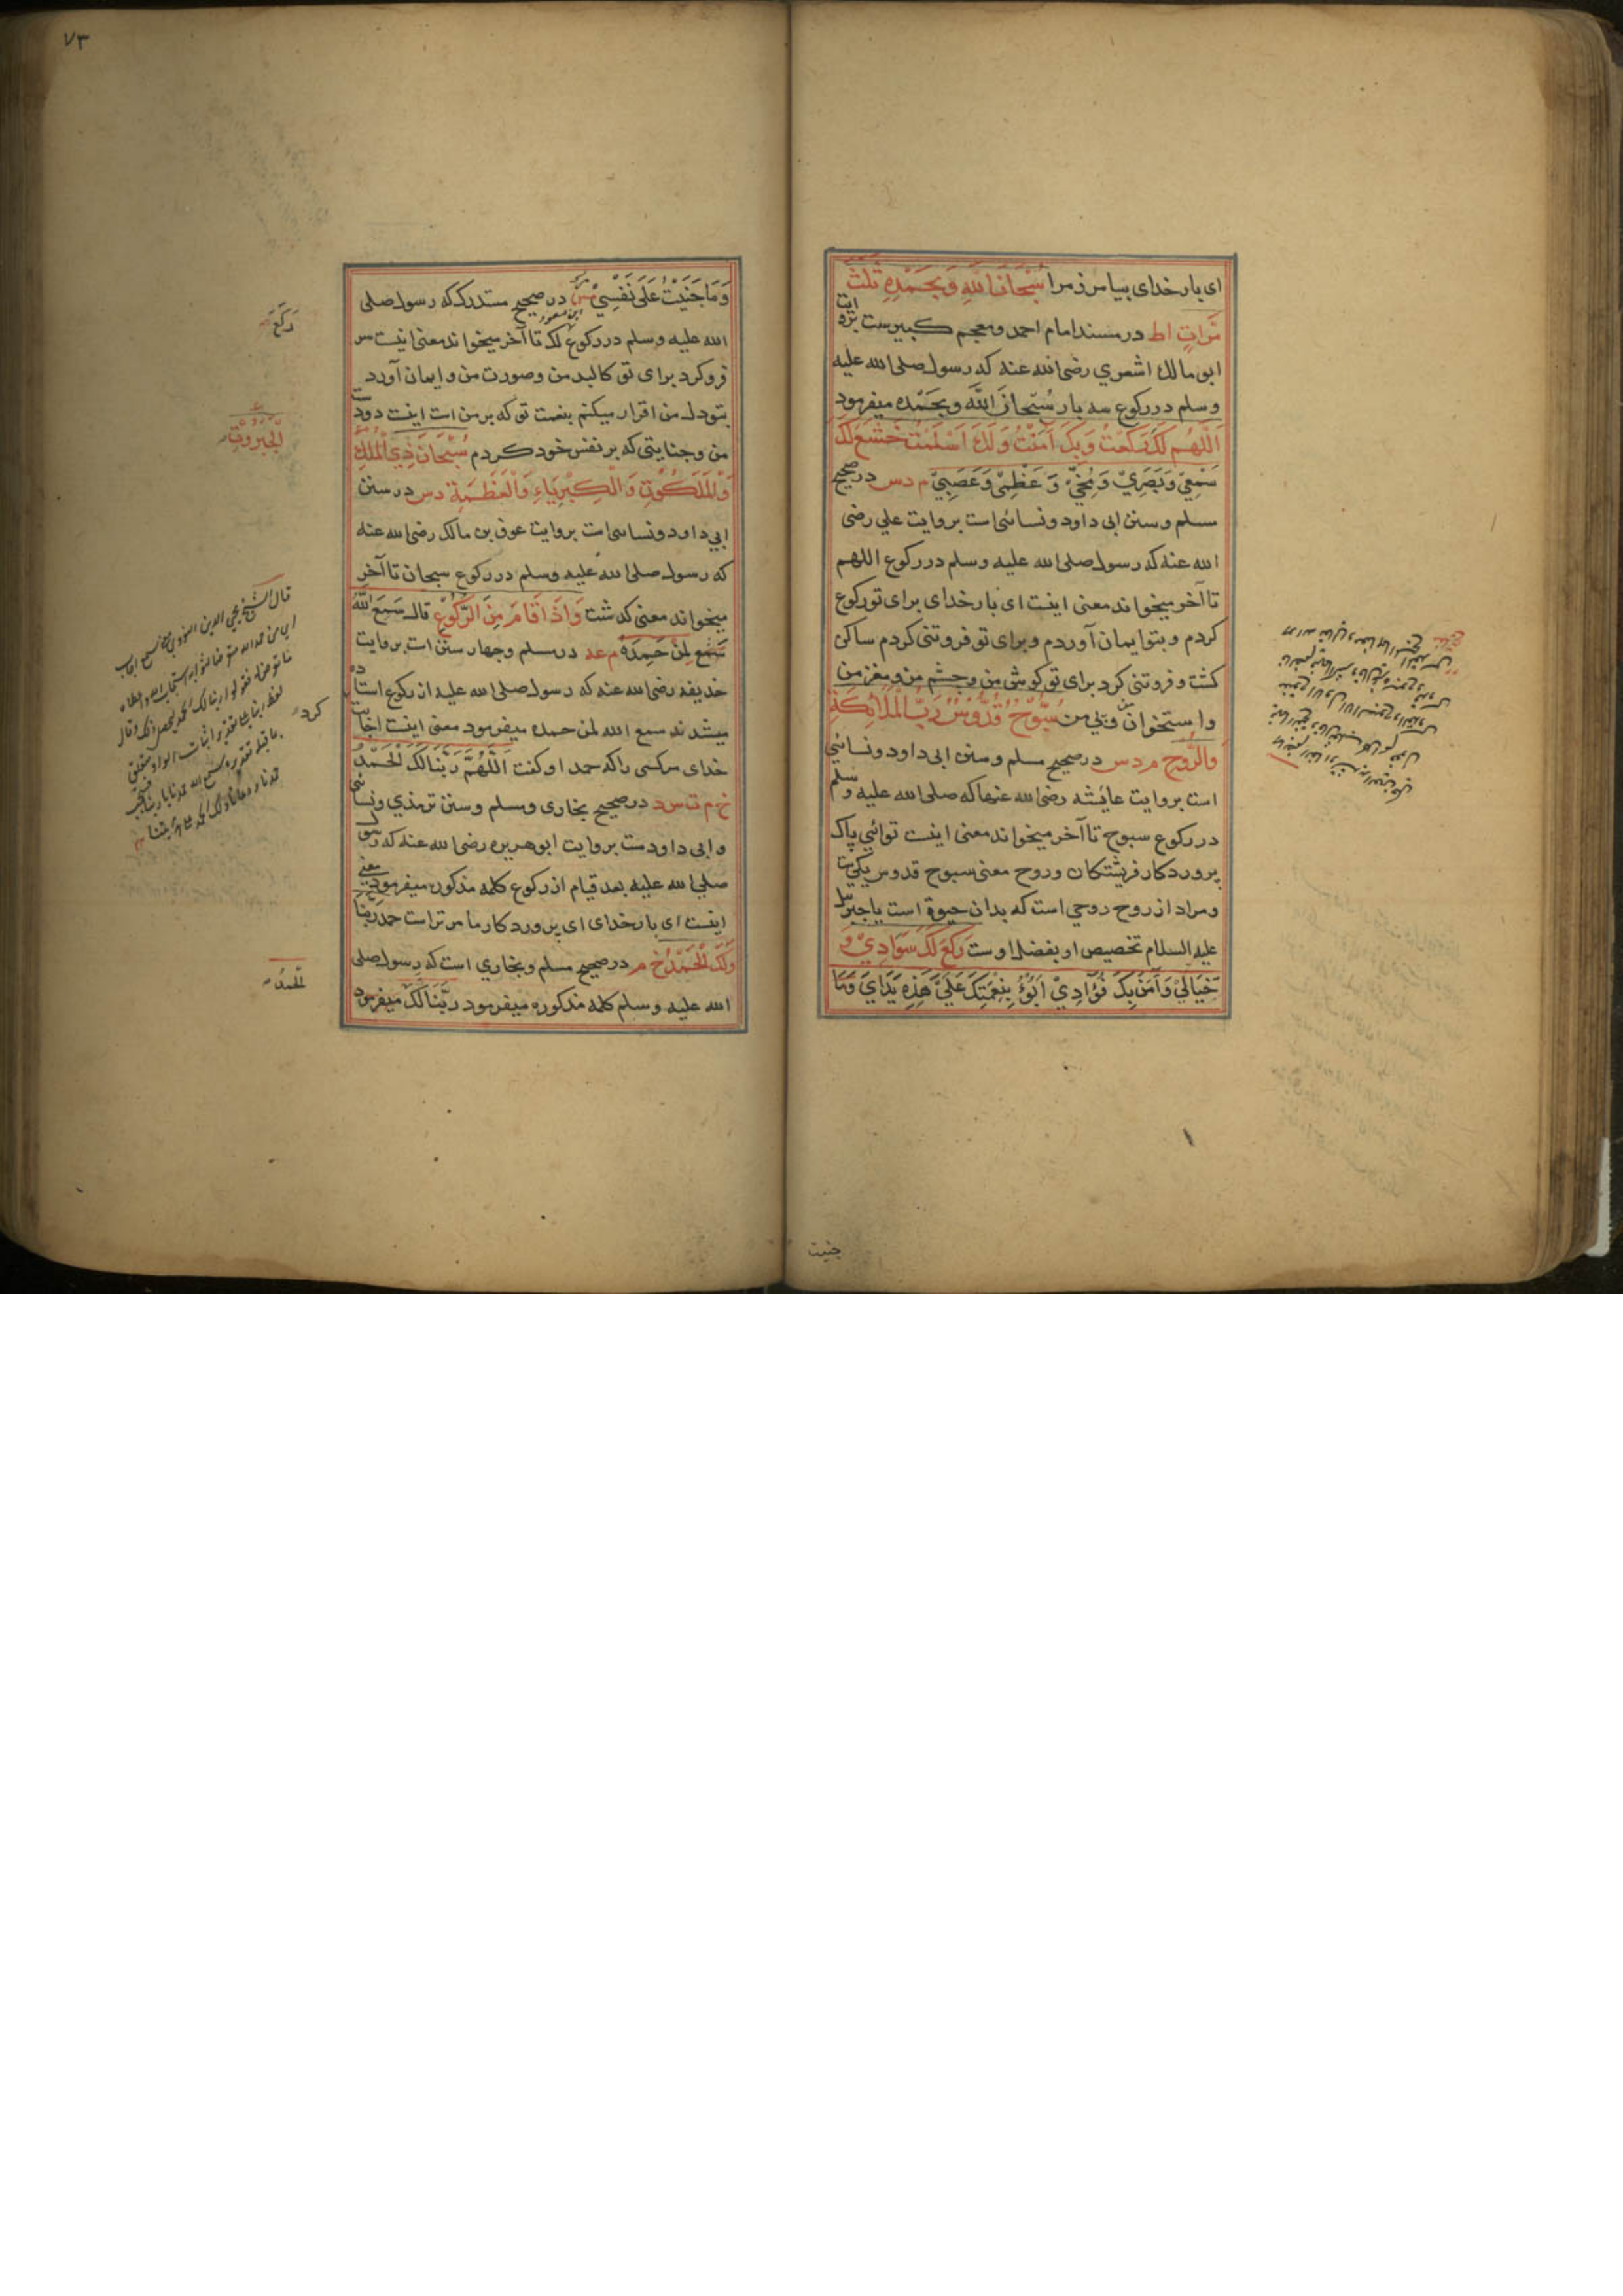 ای بار خدای بیامرز مرا سُبْحَانَ اللّٰهِ وَبِحَمْدِهِ ثَلٰثَ
مَرَّاتٍ اط در مسند امام احمد و معجم کبیرست بروایت
ابو مالک اشعري رضی الله عنه که رسول صلی الله علیه
وسلم در رکوع سه بار سُبْحَانَ اللّٰهِ وبِحَمْدِه میفرمود
اَللّٰهُمَّ لَكَ رَكَعْتُ وَبِكَ آمَنْتُ وَلَكَ اَسْلَمْتُ خَشَعَ لَكَ
سَمْعِيْ وَبَصَرِيْ وَمُخِّيْ وَعَظْمِيْ وَعَصَبِيْ م د س در صحیح
مسلم و سنن ابی داود و نسائی است بروایت علي رضی
الله عنه که رسول صلی الله علیه وسلم در رکوع اللهم
تا آخر میخواند معنی اینست ای بار خدای برای تو رکوع
کردم و بتو ایمان آوردم و برای تو فروتنی کردم ساکن
کشت و فروتنی کرد برای تو کوش من و چشم من و مغز من
و استخوان من و پی من سُبُّوْحٌ قُدُّوْسٌ رَبُّ الْمَلَائِكَةِ
وَالرُّوْحِ م د س در صحیح مسلم و سنن ابی داود و نسائي
است بروایت عائشه رضی الله عنها که صلی الله علیه وسلم
در رکوع سبوح تا آخر میخواند معنی اینست توائي پاک
پروردکار فرشتکان و روح معنی سبوح قدوس یکیست
و مراد از روح روحي است که بدان حیوة است یا جبرئیل
علیه السلام تخصیص او بفضل اوست رَكَعَ لَكَ سَوَادِيْ وَ
خَيَالِيْ وَآمَنَ بِكَ فُؤَادِيْ اَبُوْءُ بِنِعْمَتِكَ عَلَيَّ هٰذِهِ يَدَايَ وَمَا
جنیت
۷۳
وَمَا جَنَيْتُ عَلٰى نَفْسِيْ در صحیح مستدرک که رسول صلی
ابن مسعود
الله علیه وسلم در رکوع لک تا آخر میخواند معنی اینست سر
فرو کرد برای تو کالبد من و صورت من و ایمان آورد
بتو دل من اقرار میکنم بنعمت تو که بر من است اینست دو دست
من و جنایتی که بر نفس خود کردم سُبْحَانَ ذِي الْمُلْكِ
وَالْمَلَكُوْتِ وَالْكِبْرِيَاءِ وَالْعَظَمَةِ د س در سنن
ابي داود و نسائی است بروایت عوف بن مالک رضی الله عنه
که رسول صلی الله علیه وسلم در رکوع سبحان تا آخر
میخواند معنی کذشت وَاِذَا قَامَ مِنَ الرُّكُوْعِ قَالَ سَمِعَ اللّٰهُ
لِمَنْ حَمِدَهُ م عه در مسلم و چهار سنن است بروایت
حذیفه رضی الله عنه که رسول صلی الله علیه از رکوع استاده
میشدند سمع الله لمن حمده میفرمود معنی اینست اجابت
خدای مرکسی را که حمد او کفت اَللّٰهُمَّ رَبَّنَا لَكَ الْحَمْدُ
خ م ت س د در صحیح بخاری و مسلم و سنن ترمذي و نسائی
و ابی داودست بروایت ابو هریره رضی الله عنه که رسول
صلي الله علیه بعد قیام از رکوع کلمه مذکور میفرمود معنی
اینست ای بار خدای ای پروردکار ما مر تراست حمد رَبَّنَا
وَلَكَ الْحَمْدُ خ م در صحیح مسلم و بخاري است که رسول صلی
الله علیه وسلم کلمه مذکوره میفرمود رَبَّنَا لَكَ میفرمود
رَكَعَ
الْجَبَرُوْتِ
قال الشیخ محیي الدین النووی
کرد
الحمدُ